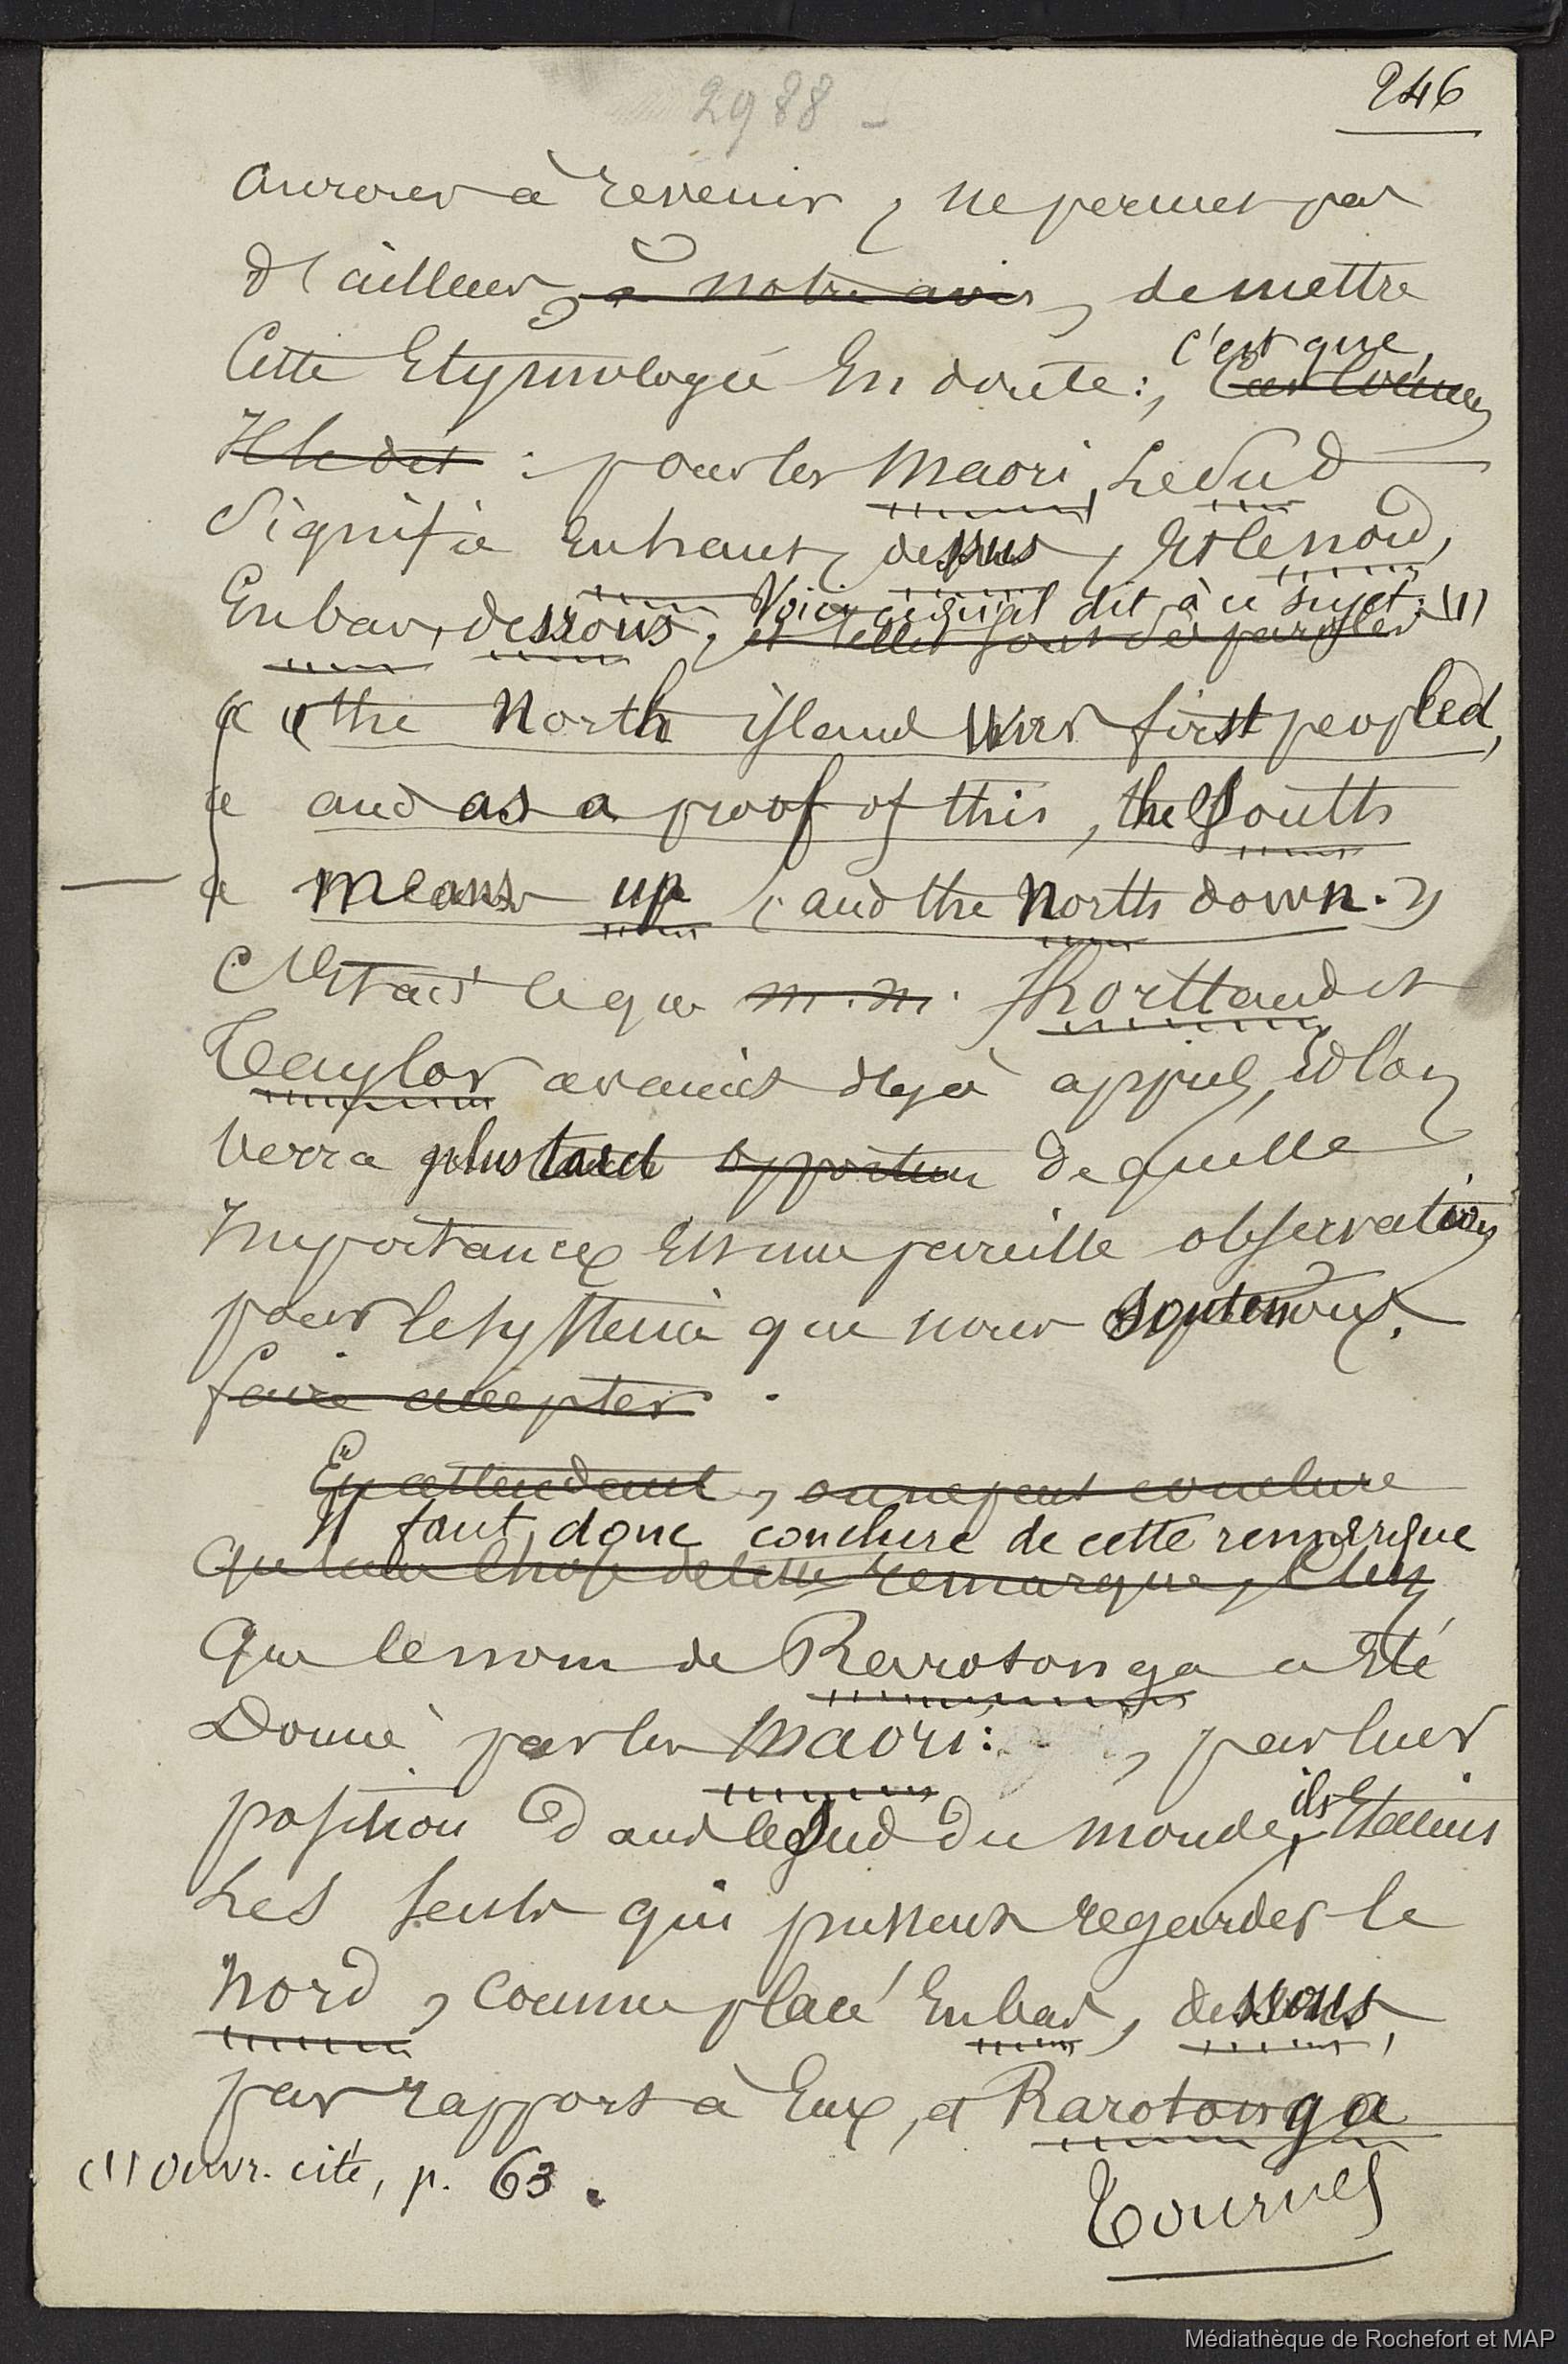 2988 -
246
aurons à revenir, ne permet pas
d'ailleurs, à notre avis, de mettre
Cette Etymologie En doute:, c'est que,
Il le dit : pour les Maori, le Sud
Signifie En haut, dessus, Et le nord,
Voici ce qu'il dit à ce sujet: (1)
En bas, dessous, et telles sont ses paroles
« « the North island was first peopled,
« and as a proof of this, the South
« means up, and the North down. »
C'était ce que M.M. Shortland et
Taylor avaient déjà appris, Et l'on
verra plus tard de quelle
Importance Est une pareille observation
pour le système que nous soutenons.
faire accepter.
En attendant, on ne peut conclure
Il faut donc conclure de cette remarque
quelque chose de cette remarque, c'est
Que le nom de Rarotonga a Eté
Donné par les Maori: , par leur
position dans le Sud du monde, ils Etaient
Les seuls qui pussent regarder le
Nord, comme placé En bas, dessous,
par rapport à Eux, et Rarotonga
(1) Ouvr. cité, p. 63.
Tournes
Médiathèque de Rochefort et MAP